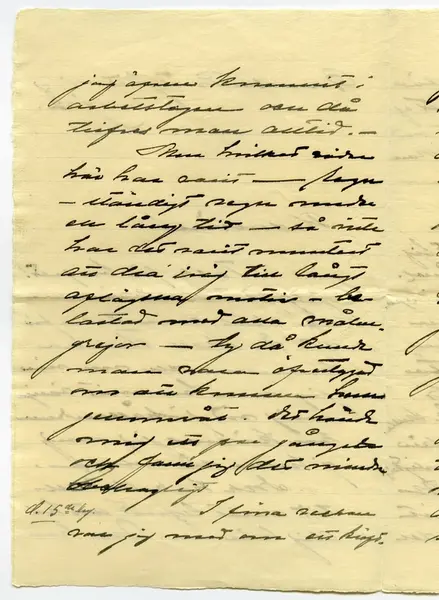 jag äfven kommit i
arbetstagen och då
trifves man alltid. —
Men hvilket väder
här har varit — regn
— ständigt regn under
en lång tid — så inte
har det varit muntert
att dra iväg till långt
aflägsna motiv — be-
lastad med alla målar-
grejor — ty då kunde
man vara öfvertygad
om att komma hem
genomvåt. Det hände
mig ett par gånger
och fann jag det mindre
behagligt
d. 15 de
I fina
var jag med om ett